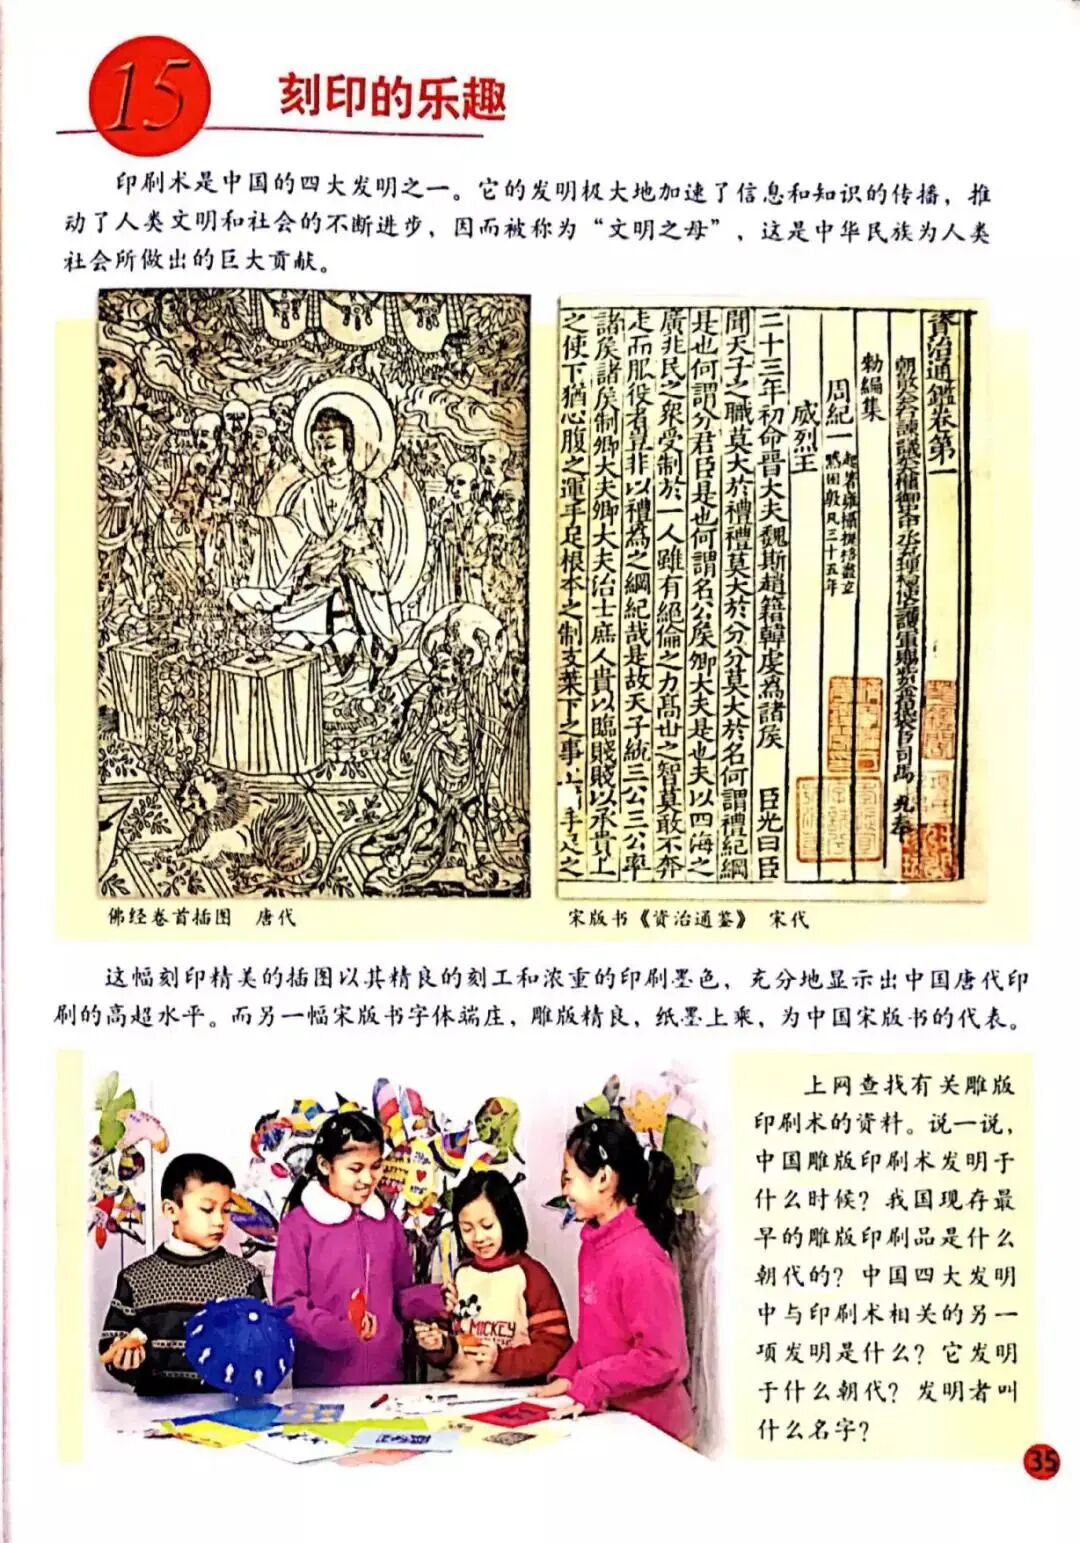 15
刻印的乐趣
印刷术是中国的四大发明之一。它的发明极大地加速了信息和知识的传播，推
动了人类文明和社会的不断进步，因而被称为“文明之母”，这是中华民族为人类
社会所做出的巨大贡献。
資治通鑑卷第一
司馬 光奉
勅編集
周紀一
凡三十五年
威烈王
二十三年初命晉大夫魏斯趙籍韓虔為諸侯 臣光曰臣
聞天子之職莫大於禮禮莫大於分分莫大於名何謂禮紀綱
是也何謂分君臣是也何謂名公侯卿大夫是也夫以四海之
廣兆民之衆受制於一人雖有絕倫之力高世之智莫敢不奔
走而服役者豈非以禮為之綱紀哉是故天子統三公三公率
諸侯諸侯制卿大夫卿大夫治士庶人貴以臨賤賤以承貴上
之使下猶心腹之運手足根本之制支葉下之事上 手足之
佛经卷首插图 唐代
宋版书《资治通鉴》 宋代
这幅刻印精美的插图以其精良的刻工和浓重的印刷墨色，充分地显示出中国唐代印
刷的高超水平。而另一幅宋版书字体端庄，雕版精良，纸墨上乘，为中国宋版书的代表。
MICKEY
上网查找有关雕版
印刷术的资料。说一说，
中国雕版印刷术发明于
什么时候？我国现存最
早的雕版印刷品是什么
朝代的？中国四大发明
中与印刷术相关的另一
项发明是什么？它发明
于什么朝代？发明者叫
什么名字？
35